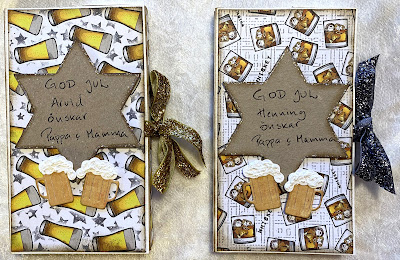 GOD JUL
Arvid
önskar
Pappa & Mamma
GOD JUL
Henning
önskar
Pappa & Mamma